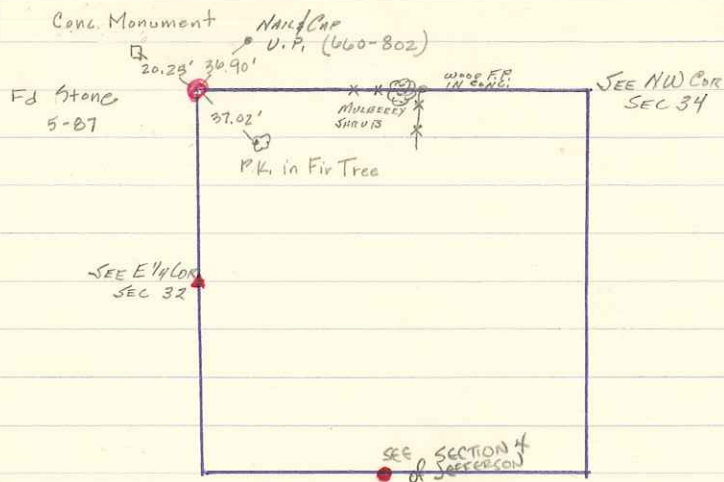 Conc. Monument
NAIL & CAP
U.P. (660-802)
20.25' 36.90'
Fd Stone
5-87
37.02'
P.K. in Fir Tree
MULBERRY
SHRUBS
WOOD F.P.
IN CONC.
SEE NW COR
SEC 34
SEE E 1/4 COR
SEC 32
SEE SECTION 4
of JEFFERSON